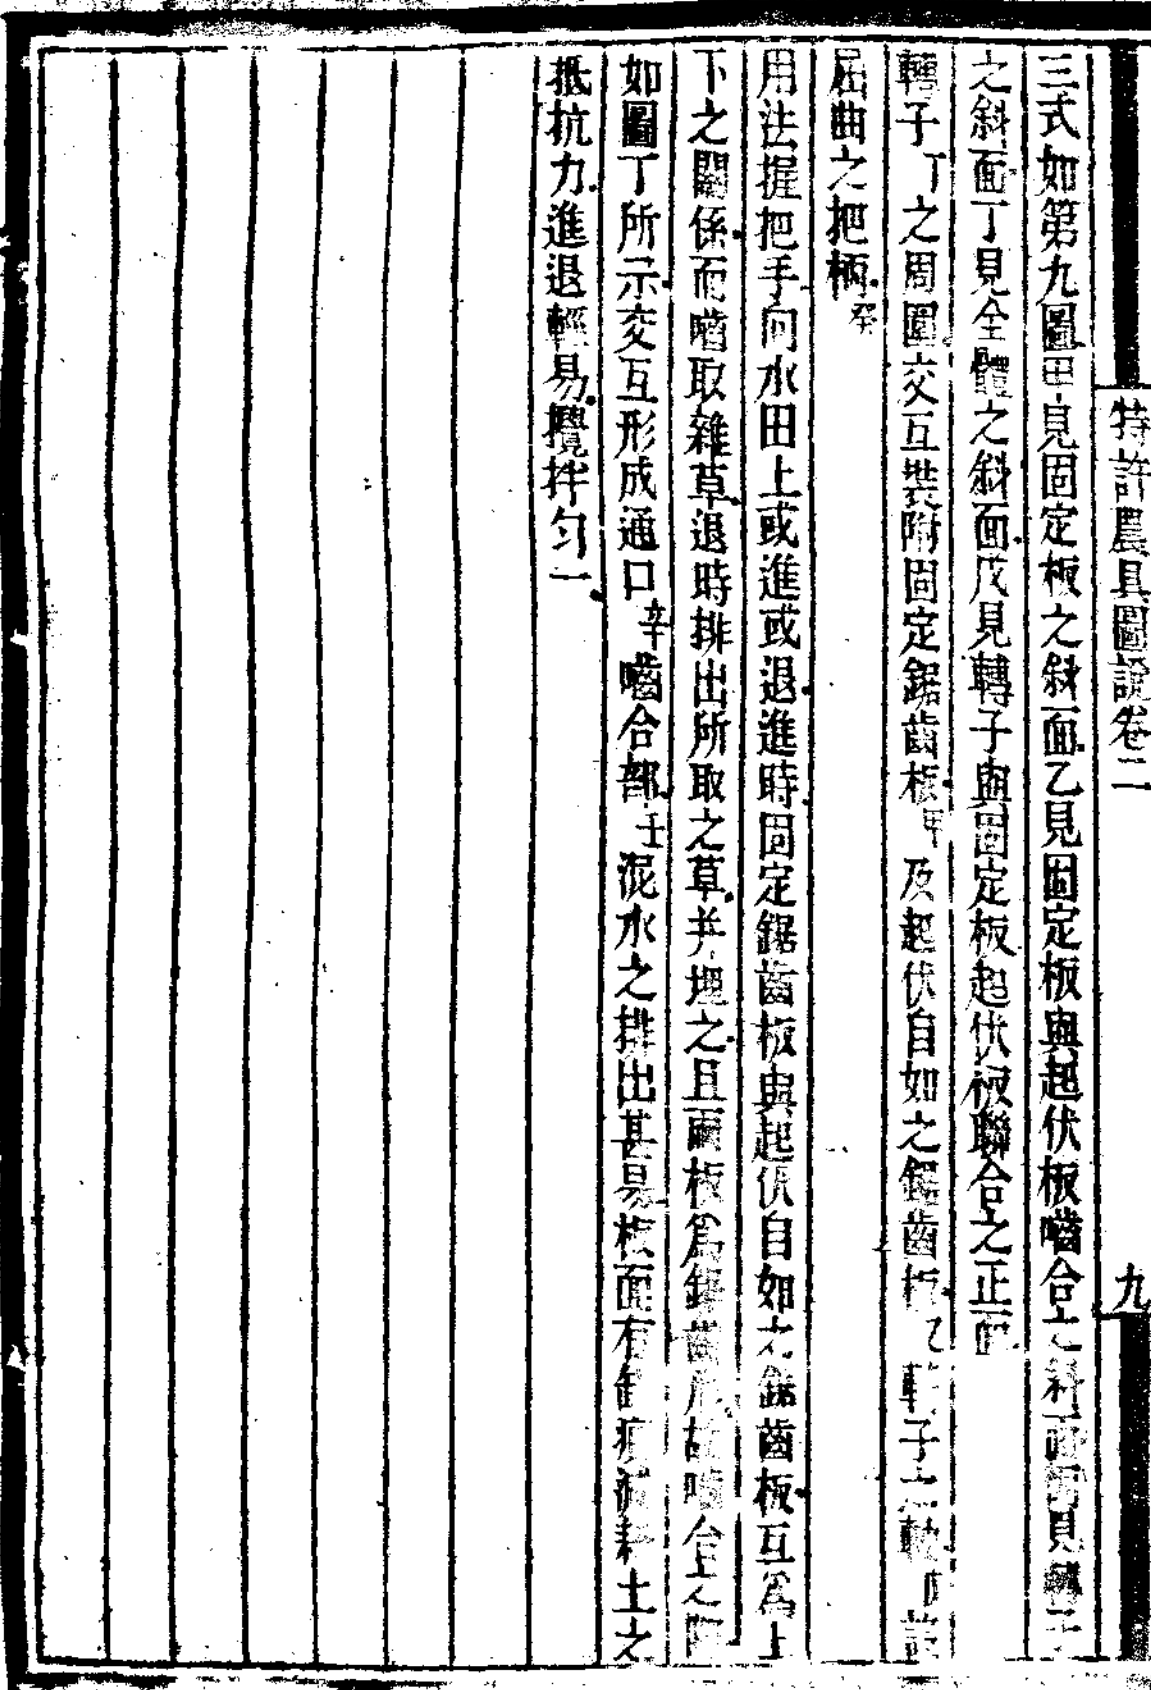 特許農具圖說卷二
九
三式如第九圖甲見固定板之斜面乙見固定板與起伏板嚙合之斜面丙見轉子
之斜面丁見全體之斜面戊見轉子與固定板起伏板聯合之正面
轉子丁之周圍交互裝附固定鋸齒板甲及起伏自如之鋸齒板乙轉子之軸
屈曲之把柄癸
用法握把手向水田上或進或退進時固定鋸齒板與起伏自如之鋸齒板互為上
下之關係而嚙取雜草退時排出所取之草并埋之且兩板為鋸齒形故嚙合之際
如圖丁所示交互形成通口辛嚙合部壬泥水之排出甚易板面有缺痕減耕土之
抵抗力進退輕易攪拌匀一